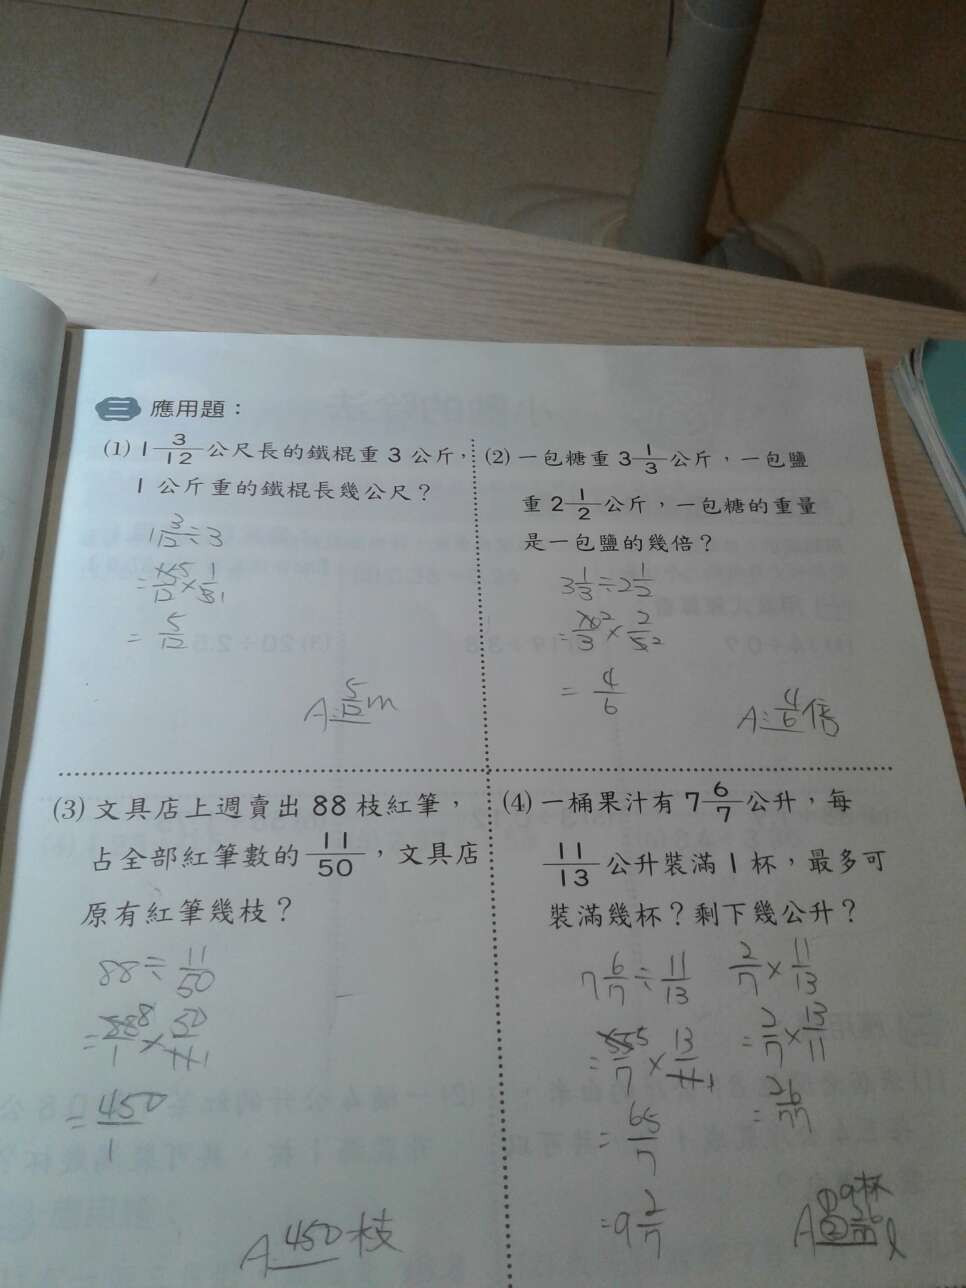 三 應用題：
(1) 1 3/12 公尺長的鐵棍重 3 公斤，
1 公斤重的鐵棍長幾公尺？
1 3/12 ÷ 3
= 5/12
A: 5/12 m
(2) 一包糖重 3 1/3 公斤，一包鹽
重 2 1/2 公斤，一包糖的重量
是一包鹽的幾倍？
3 1/3 ÷ 2 1/2
= 4/6
A: 4/6 倍
(3) 文具店上週賣出 88 枝紅筆，
占全部紅筆數的 11/50，文具店
原有紅筆幾枝？
88 ÷ 11/50
= 450/1
A: 450枝
(4) 一桶果汁有 7 6/7 公升，每
11/13 公升裝滿 1 杯，最多可
裝滿幾杯？剩下幾公升？
7 6/7 ÷ 11/13
= 65/7
= 9 2/7
2/7 × 11/13
= 2/7 × 13/11
= 26/77
A ① 9杯